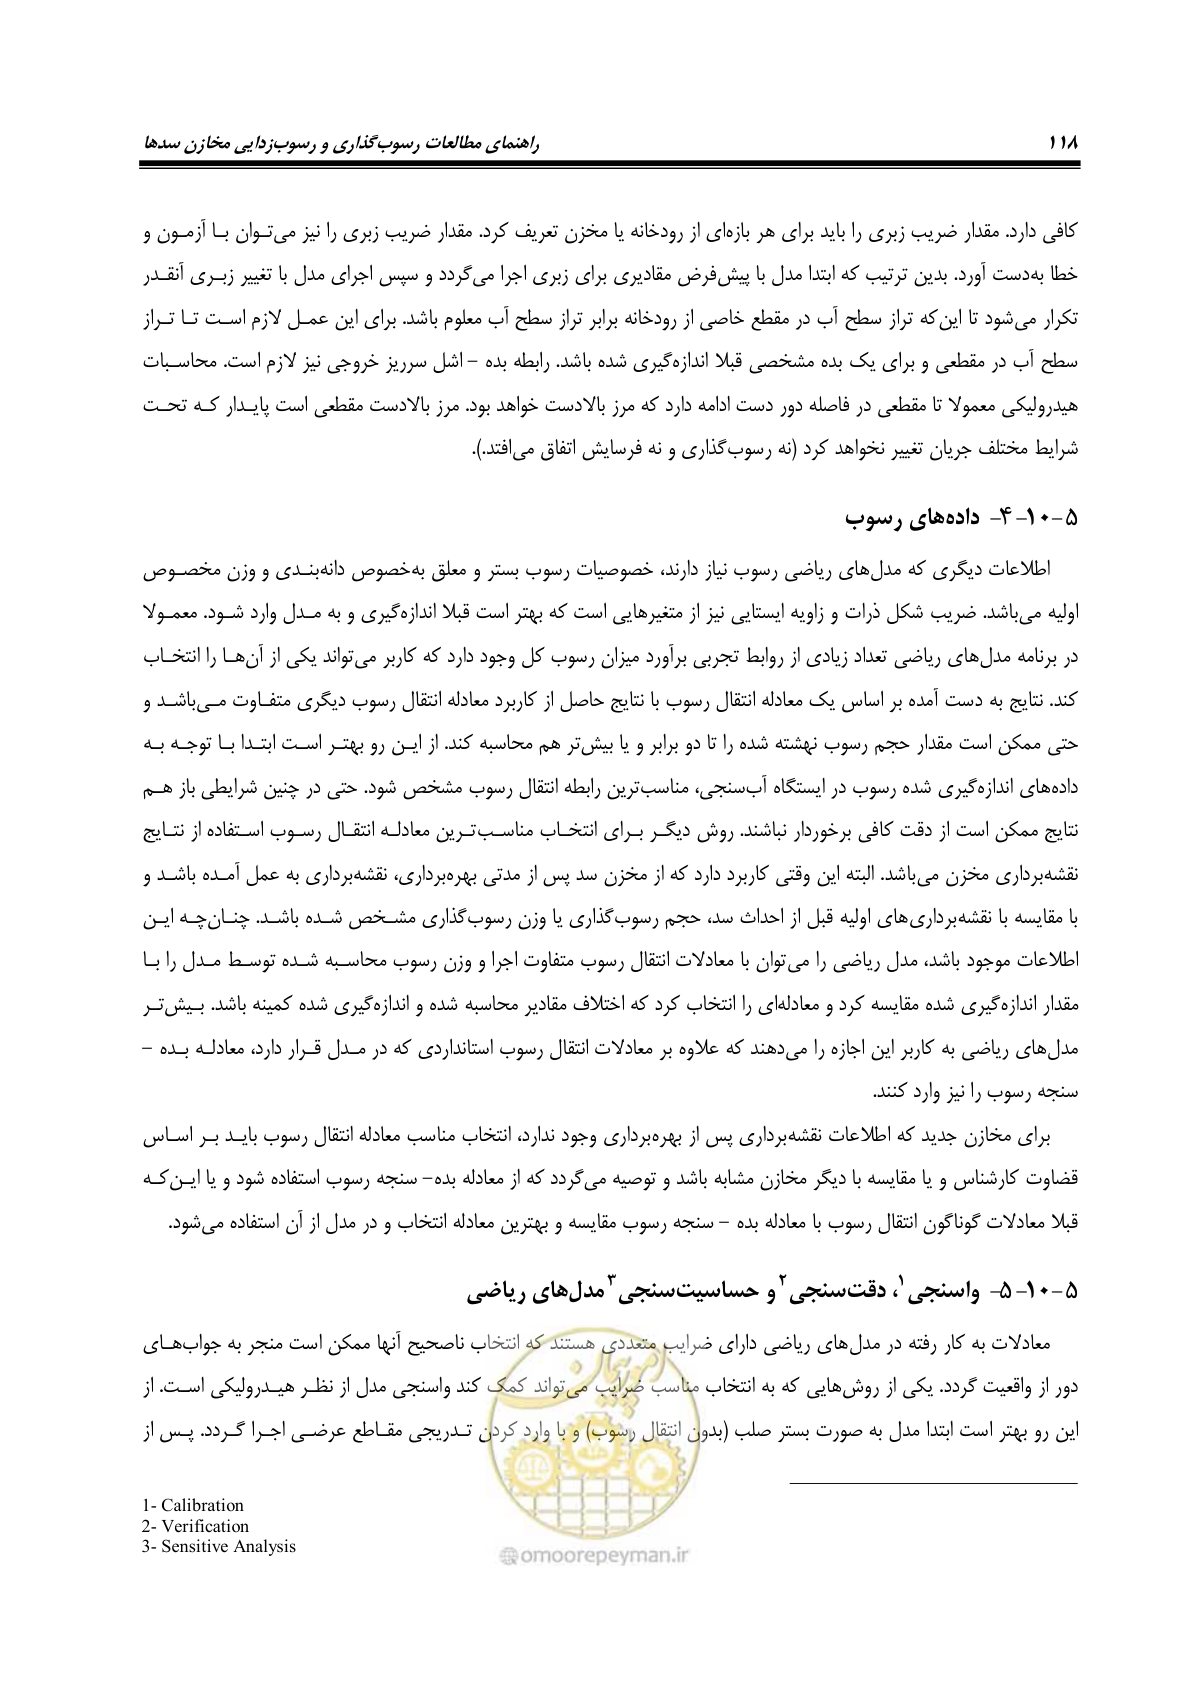 ۱۱۸ راهنمای مطالعات رسوب‌گذاری و رسوب‌زدایی مخازن سدها
کافی دارد. مقدار ضریب زبری را باید برای هر بازه‌ای از رودخانه یا مخزن تعریف کرد. مقدار ضریب زبری را نیز می‌توان با آزمون و
خطا به‌دست آورد. بدین ترتیب که ابتدا مدل با پیش‌فرض مقادیری برای زبری اجرا می‌گردد و سپس اجرای مدل با تغییر زبری آنقدر
تکرار می‌شود تا این‌که تراز سطح آب در مقطع خاصی از رودخانه برابر تراز سطح آب معلوم باشد. برای این عمل لازم است تا تراز
سطح آب در مقطعی و برای یک بده مشخصی قبلا اندازه‌گیری شده باشد. رابطه بده – اشل سرریز خروجی نیز لازم است. محاسبات
هیدرولیکی معمولا تا مقطعی در فاصله دور دست ادامه دارد که مرز بالادست خواهد بود. مرز بالادست مقطعی است پایدار که تحت
شرایط مختلف جریان تغییر نخواهد کرد (نه رسوب‌گذاری و نه فرسایش اتفاق می‌افتد.).
۵-۱۰-۴- داده‌های رسوب
اطلاعات دیگری که مدل‌های ریاضی رسوب نیاز دارند، خصوصیات رسوب بستر و معلق به‌خصوص دانه‌بندی و وزن مخصوص
اولیه می‌باشد. ضریب شکل ذرات و زاویه ایستایی نیز از متغیرهایی است که بهتر است قبلا اندازه‌گیری و به مدل وارد شود. معمولا
در برنامه مدل‌های ریاضی تعداد زیادی از روابط تجربی برآورد میزان رسوب کل وجود دارد که کاربر می‌تواند یکی از آن‌ها را انتخاب
کند. نتایج به دست آمده بر اساس یک معادله انتقال رسوب با نتایج حاصل از کاربرد معادله انتقال رسوب دیگری متفاوت می‌باشد و
حتی ممکن است مقدار حجم رسوب نهشته شده را تا دو برابر و یا بیش‌تر هم محاسبه کند. از این رو بهتر است ابتدا با توجه به
داده‌های اندازه‌گیری شده رسوب در ایستگاه آب‌سنجی، مناسب‌ترین رابطه انتقال رسوب مشخص شود. حتی در چنین شرایطی باز هم
نتایج ممکن است از دقت کافی برخوردار نباشند. روش دیگر برای انتخاب مناسب‌ترین معادله انتقال رسوب استفاده از نتایج
نقشه‌برداری مخزن می‌باشد. البته این وقتی کاربرد دارد که از مخزن سد پس از مدتی بهره‌برداری، نقشه‌برداری به عمل آمده باشد و
با مقایسه با نقشه‌برداری‌های اولیه قبل از احداث سد، حجم رسوب‌گذاری یا وزن رسوب‌گذاری مشخص شده باشد. چنان‌چه این
اطلاعات موجود باشد، مدل ریاضی را می‌توان با معادلات انتقال رسوب متفاوت اجرا و وزن رسوب محاسبه شده توسط مدل را با
مقدار اندازه‌گیری شده مقایسه کرد و معادله‌ای را انتخاب کرد که اختلاف مقادیر محاسبه شده و اندازه‌گیری شده کمینه باشد. بیش‌تر
مدل‌های ریاضی به کاربر این اجازه را می‌دهند که علاوه بر معادلات انتقال رسوب استانداردی که در مدل قرار دارد، معادله بده –
سنجه رسوب را نیز وارد کنند.
برای مخازن جدید که اطلاعات نقشه‌برداری پس از بهره‌برداری وجود ندارد، انتخاب مناسب معادله انتقال رسوب باید بر اساس
قضاوت کارشناس و یا مقایسه با دیگر مخازن مشابه باشد و توصیه می‌گردد که از معادله بده– سنجه رسوب استفاده شود و یا این‌که
قبلا معادلات گوناگون انتقال رسوب با معادله بده – سنجه رسوب مقایسه و بهترین معادله انتخاب و در مدل از آن استفاده می‌شود.
۵-۱۰-۵- واسنجی۱، دقت‌سنجی۲ و حساسیت‌سنجی۳ مدل‌های ریاضی
معادلات به کار رفته در مدل‌های ریاضی دارای ضرایب متعددی هستند که انتخاب ناصحیح آنها ممکن است منجر به جواب‌های
دور از واقعیت گردد. یکی از روش‌هایی که به انتخاب مناسب ضرایب می‌تواند کمک کند واسنجی مدل از نظر هیدرولیکی است. از
این رو بهتر است ابتدا مدل به صورت بستر صلب (بدون انتقال رسوب) و با وارد کردن تدریجی مقاطع عرضی اجرا گردد. پس از
1- Calibration
2- Verification
3- Sensitive Analysis
امور پیمان
@omoorepeyman.ir